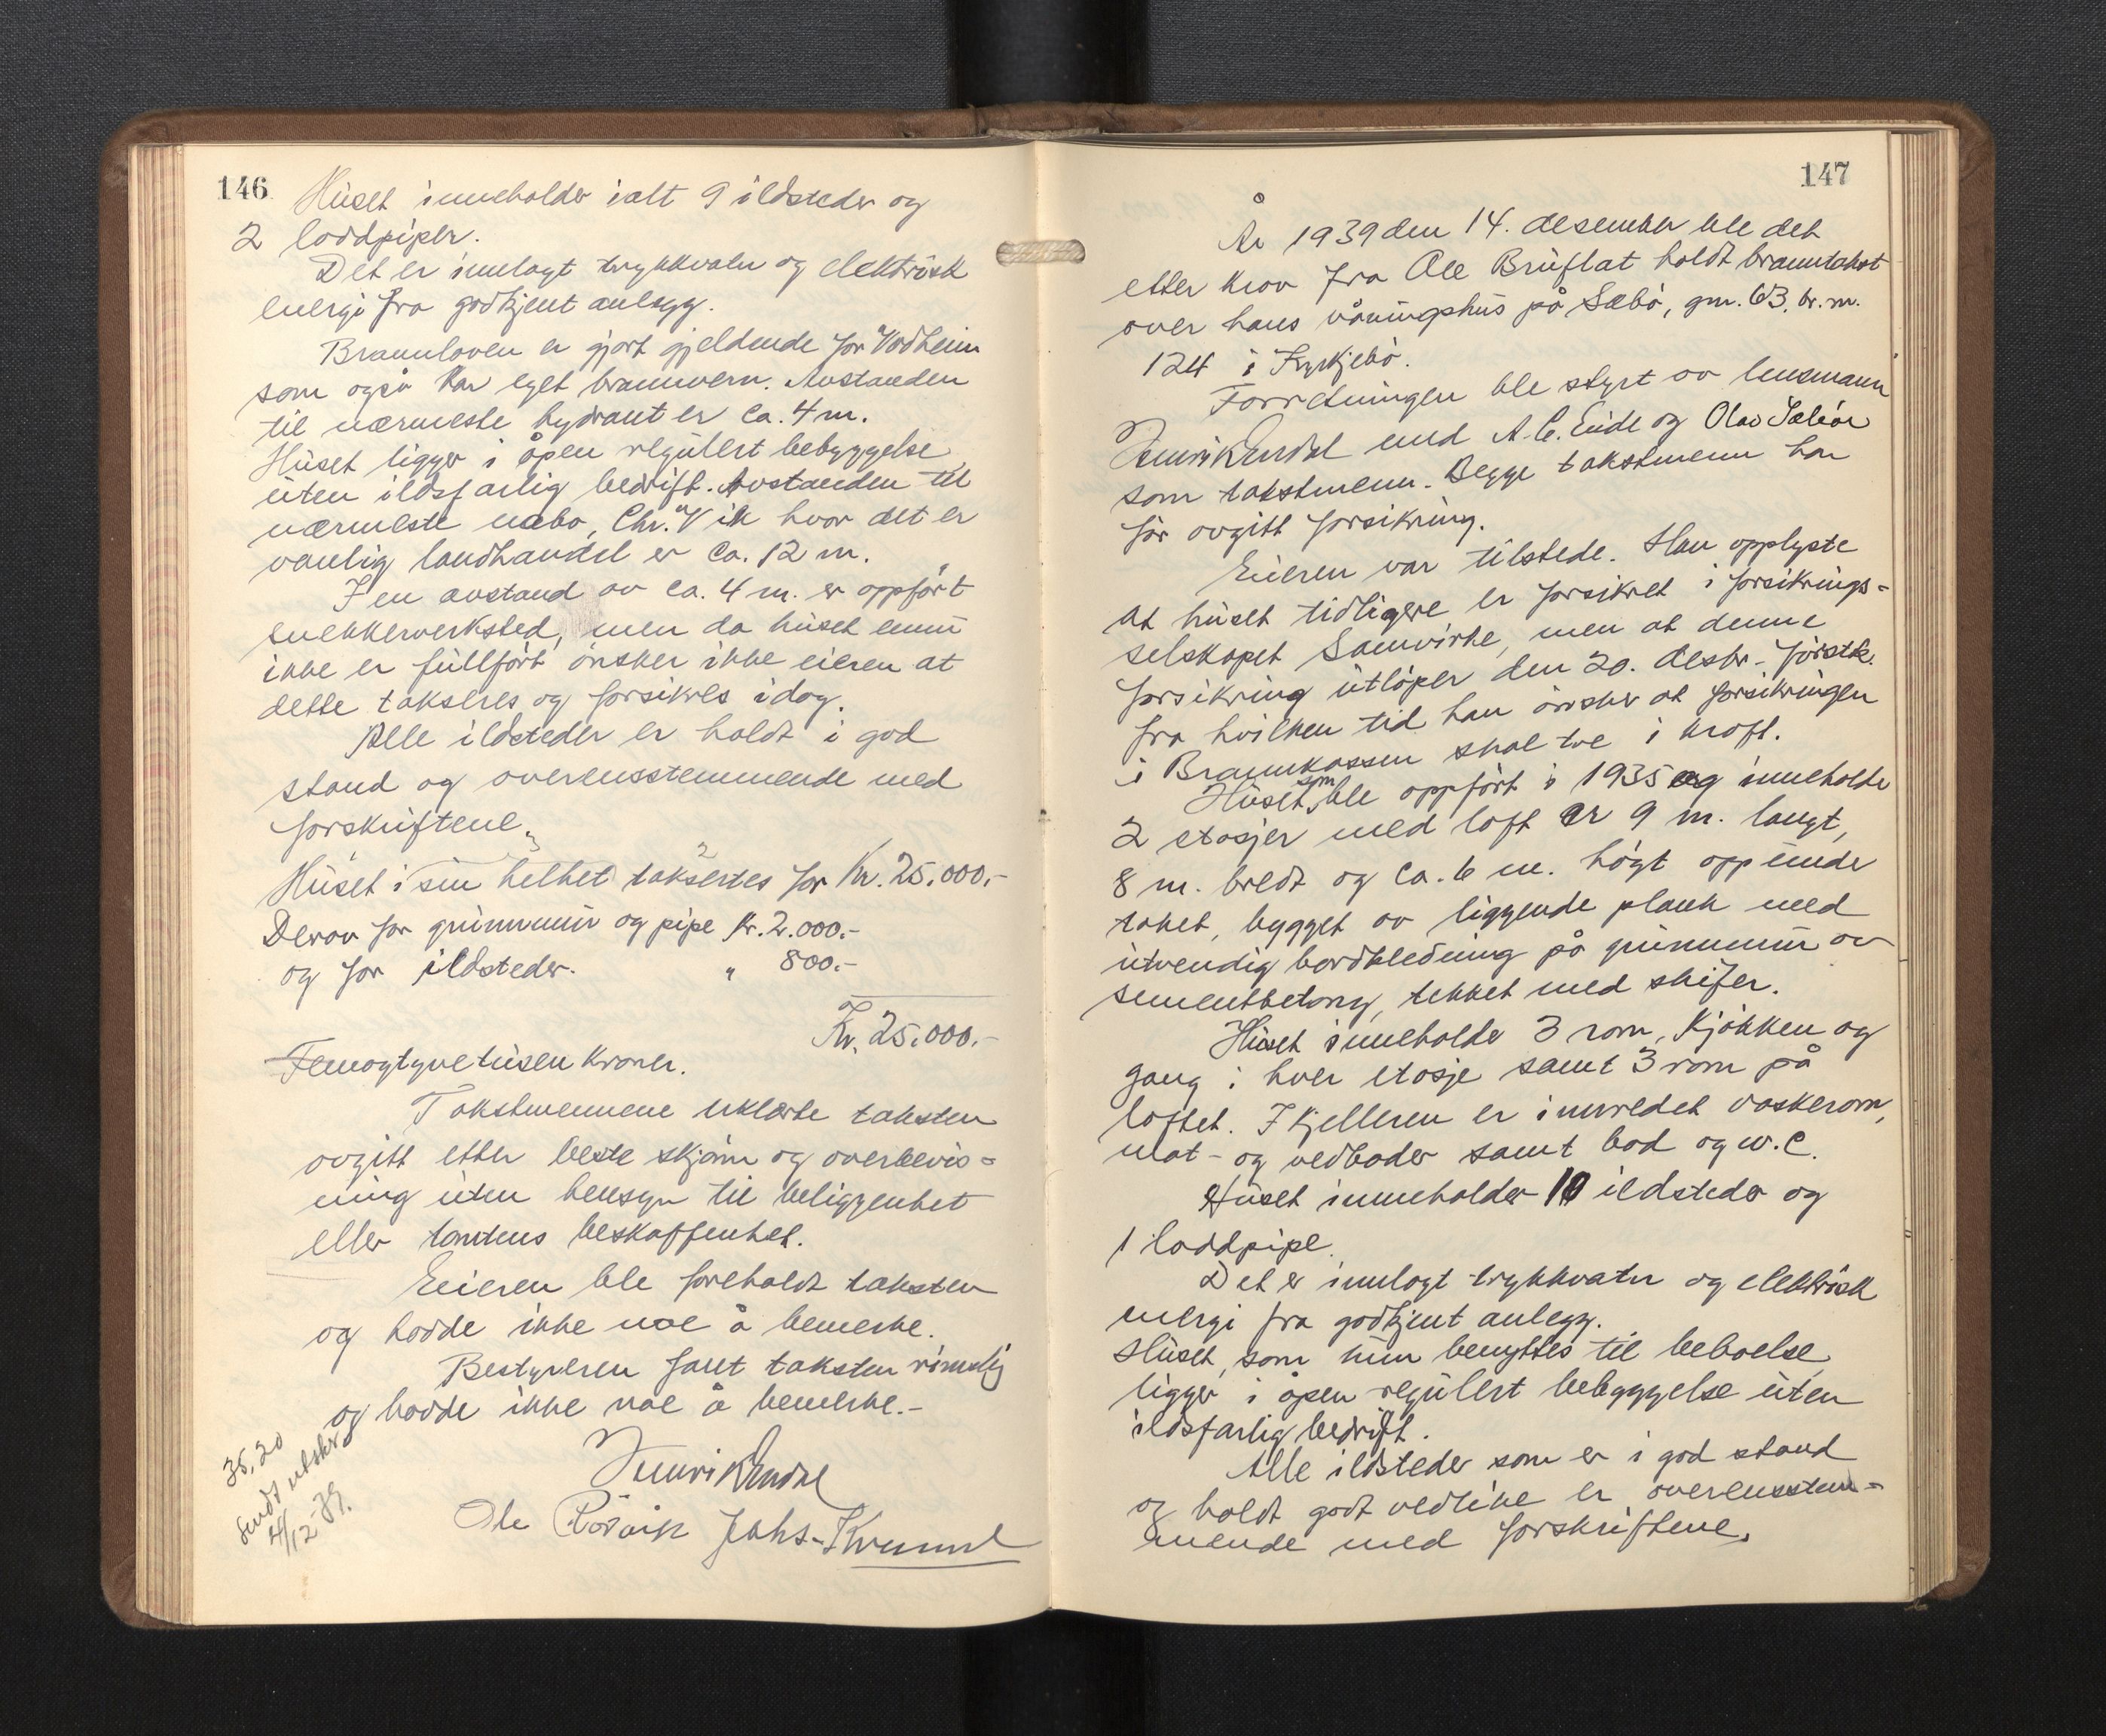 146
Huset inneholder ialt 9 ildsteder og
2 loddpiper.
Det er innlagt trykkvatn og elektrisk
energi fra godkjent anlegg.
Brannloven er gjort gjeldende for Vadheim
som også har eget brannvern. Avstanden
til nærmeste hydrant er ca. 4 m.
Huset ligger i åpen regulert bebyggelse
uten ildsfarlig bedrift. Avstanden til
nærmeste nabo, Chr. Vik hvor det er
vanlig landhandel er ca. 12 m.
I en avstand av ca. 4 m. er oppført
snekkerverksted, men da huset ennu
ikke er fullført ønsker ikke eieren at
dette takseres og forsikres idag.
Alle ildsteder er holdt i god
stand og overensstemmende med
forskriftene.
Huset i sin helhet taksertes for Kr. 25.000.-
Derav for grunnmur og pipe Kr. 2.000.-
og for ildsteder. " 800.-
Kr. 25.000.-
Femogtyvetusen Kroner.
Takstmennene erklærte taksten
avgitt etter beste skjønn og overbevis=
ning uten hensyn til beliggenhet
eller tomtens beskaffenhet.
Eieren ble foreholdt taksten
og hadde ikke noe å bemerke.
Bestyreren fant taksten rimelig
og hadde ikke noe å bemerke.-
Henrik Endal
Ole Rörvik Johs.
35,20
Sendt utskr.
4/12-39.
147
År 1939 den 14. desember ble det
etter krav fra Ole Bruflat holdt branntakst
over hans våningshus på Sæbø, gnr. 63, br. nr.
124 i Kyrkjebø.
Forretningen ble styrt av lensmann
Henrik Endal med A. C. Eide og Olav
som takstmenn. Begge takstmenn har
før avgitt forsikring.
Eieren var tilstede. Han opplyste
at huset tidligere er forsikret i forsikrings=
selskapet Samvirke, men at denne
forsikring utløper den 20. desbr. førstk.
fra hvilken tid han ønsker at forsikringen
i Brannkassen skal tre i kraft.
Huset som ble oppført i 1935 og inneholder
2 etasjer med loft er 9 m. langt,
8 m. bredt og ca. 6 m. høgt opp under
taket, bygget av liggende plank med
utvendig bordkledning på grunnmur av
sementbetong, tekket med skifer.
Huset inneholder 3 rom, kjøkken og
gang i hver etasje samt 3 rom på
loftet. I kjelleren er innredet vaskerom,
mat- og vedboder samt bad og w.c.
Huset inneholder 10 ildsteder og
1 loddpipe.
Det er innlagt trykkvatn og elektrisk
energi fra godkjent anlegg.
Huset, som kun benyttes til beboelse,
ligger i åpen regulert bebyggelse uten
ildsfarlig bedrift.
Alle ildsteder som er i god stand
og holdt godt vedlike er overensstem=
mende med forskriftene.